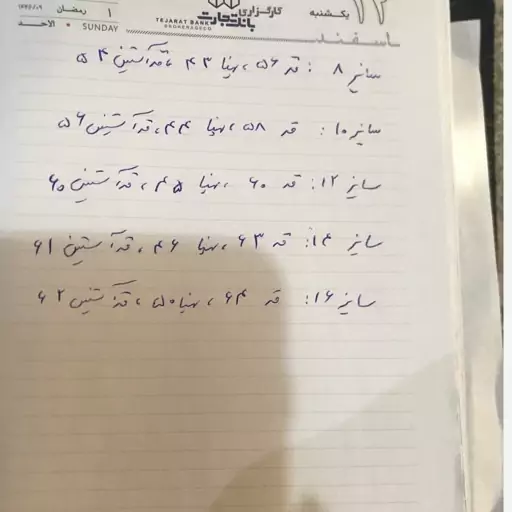 ۱۴۴۶/۰۹ رمضان ۱ کارگزاری یکشنبه ۱۲
SUNDAY • الاحد TEJARAT BANK بانک تجارت
BROKERAGE
اسفند
سایز ۸ : قد ۵۶ ، پهنا ۴۳ ، قدآستین ۵۴
سایز ۱۰ : قد ۵۸ ، پهنا ۴۴ ، قدآستین ۵۶
سایز ۱۲ : قد ۶۰ ، پهنا ۴۵ ، قدآستین ۶۰
سایز ۱۴ : قد ۶۳ ، پهنا ۴۶ ، قدآستین ۶۱
سایز ۱۶ : قد ۶۴ ، پهنا ۵۰ ، قدآستین ۶۲